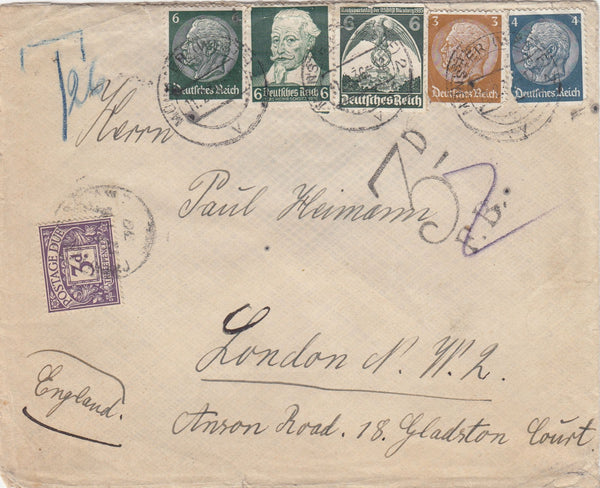 6
Deutsches Reich
6 6
Deutsches Reich
Reichsparteitag der NSDAP Nürnberg 1935
6 6
Deutsches Reich
3 3
Deutsches Reich
4 4
Deutsches Reich
Herrn
Paul Heimann
3D.
POSTAGE DUE
3d.
THREE PENCE
London N. W. 2.
England.
Anson Road. 18. Gladston Court